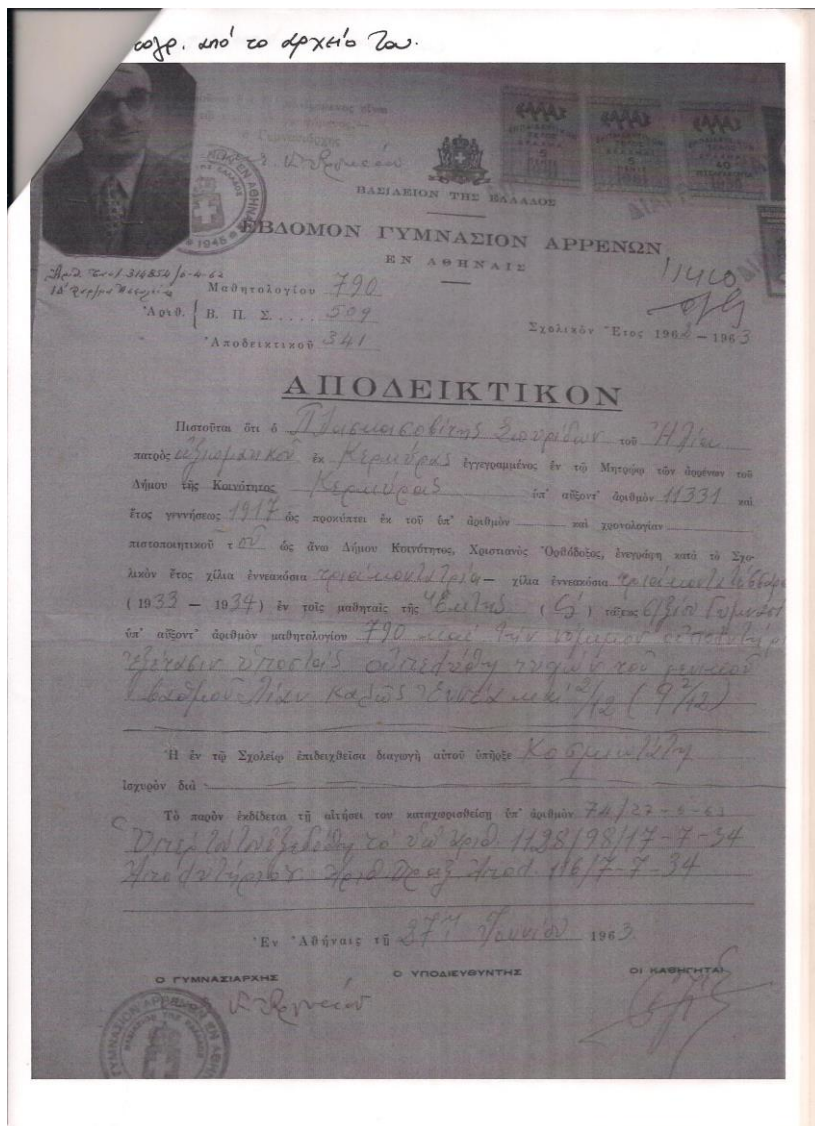 από το αρχείο του.
ΒΑΣΙΛΕΙΟΝ ΤΗΣ ΕΛΛΑΔΟΣ
ΕΒΔΟΜΟΝ ΓΥΜΝΑΣΙΟΝ ΑΡΡΕΝΩΝ
ΕΝ ΑΘΗΝΑΙΣ
Μαθητολογίου 790
Ἀριθ. Β. Π. Σ. .... 509
Ἀποδεικτικοῦ 341
Σχολικὸν Ἔτος 1962 – 1963
ΑΠΟΔΕΙΚΤΙΚΟΝ
Πιστοῦται ὅτι ὁ Πλασκασοβίτης Σπυρίδων τοῦ Ἠλία
πατρὸς ἀξιωματικοῦ ἐκ Κερκύρας ἐγγεγραμμένος ἐν τῷ Μητρῴῳ τῶν ἀρρένων τοῦ
Δήμου τῆς Κοινότητος Κερκύρας ὑπ' αὔξοντ' ἀριθμὸν 11331 καὶ
ἔτος γεννήσεως 1917 ὡς προκύπτει ἐκ τοῦ ὑπ' ἀριθμὸν καὶ χρονολογίαν
πιστοποιητικοῦ τοῦ ὡς ἄνω Δήμου Κοινότητος, Χριστιανὸς Ὀρθόδοξος, ἐνεγράφη κατὰ τὸ Σχο-
λικὸν ἔτος χίλια ἐννεακόσια τριάκοντα τρία – χίλια ἐννεακόσια τριάκοντα τέσσαρα
(1933 – 1934) ἐν τοῖς μαθηταῖς τῆς Ἕκτης (ΣΤ') τάξεως
ὑπ' αὔξοντ' ἀριθμὸν μαθητολογίου 790 καὶ τὴν νόμιμον
ἐξέτασιν ὑποστὰς ἀπελύθη τυχὼν τοῦ γενικοῦ
βαθμοῦ Λίαν Καλῶς Ἐννέα καὶ 2/12 (9 2/12)
Ἡ ἐν τῷ Σχολείῳ ἐπιδειχθεῖσα διαγωγὴ αὐτοῦ ὑπῆρξε Κοσμιωτάτη
ἰσχυρὸν διὰ
Τὸ παρὸν ἐκδίδεται τῇ αἰτήσει του καταχωρισθείσῃ ὑπ' ἀριθμὸν 74/27-6-63
τὸ ὑπ' ἀριθ. 1128/98/17-7-34
Ἀπολυτήριον. Ἀριθ. Πράξ. Ἀπολ. 116/7-7-34
Ἐν Ἀθήναις τῇ 27ῃ Ἰουνίου 1963
Ο ΓΥΜΝΑΣΙΑΡΧΗΣ Ο ΥΠΟΔΙΕΥΘΥΝΤΗΣ ΟΙ ΚΑΘΗΓΗΤΑΙ